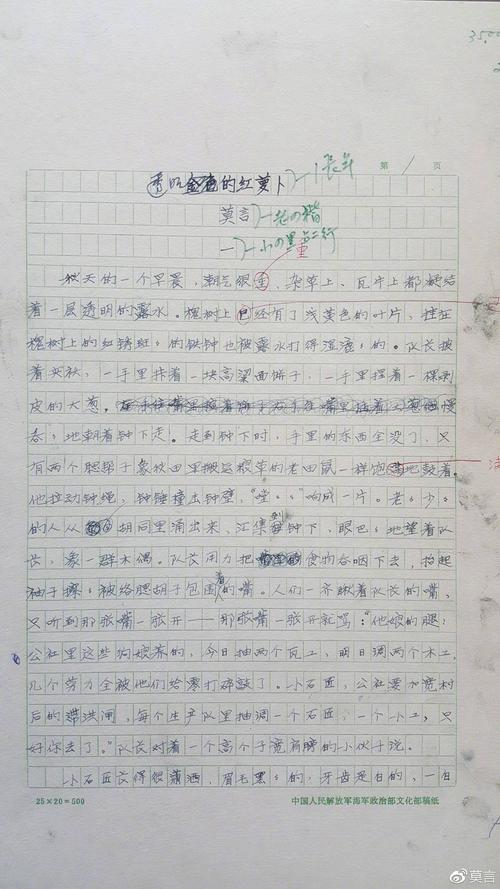 35.00
透明金色的红萝卜 1长羊
第 1 页
莫言 老の楷
一 小の黑占二行
重
秋天的一个早晨，潮气很重，杂草上、瓦片上都凝结
着一层透明的露水。槐树上已经有了浅黄色的叶片，挂在
槐树上的红锈斑々的铁钟也被露水打得湿漉々的。队长披
着夹袄，一手里拤着一块高粱面饼子，一手里捏着一棵剥
皮的大葱，慢
吞々地朝着钟下走。走到钟下时，手里的东西全没了，只
有两个腮帮子象秋田里搬运粮草的老田鼠一样饱满地鼓着。
他拉动钟绳，钟锤撞击钟壁，"嘡々々"响成一片。老々少々
的人从胡同里涌出来，汇集到钟下，眼巴々地望着队
长，象一群木偶。队长用力把食物吞咽下去，抬起
袖子擦々被络腮胡子包围着的嘴。人们一齐瞅着队长的嘴，
只听到那张嘴一张开——那张嘴一张开就骂："他娘的腿！
公社里这些狗娘养的，今日抽两个瓦工，明日调两个木工，
几个劳力全被他们给零打碎敲了。小石匠，公社要加宽村
后的滞洪闸，每个生产队里抽调一个石匠，一个小工，只
好你去了。"队长对着一个高个子宽肩膀的小伙子说。
小石匠长得很潇洒，眉毛黑々的，牙齿是白的，一白
25×20=500
中国人民解放军海军政治部文化部稿纸
莫言